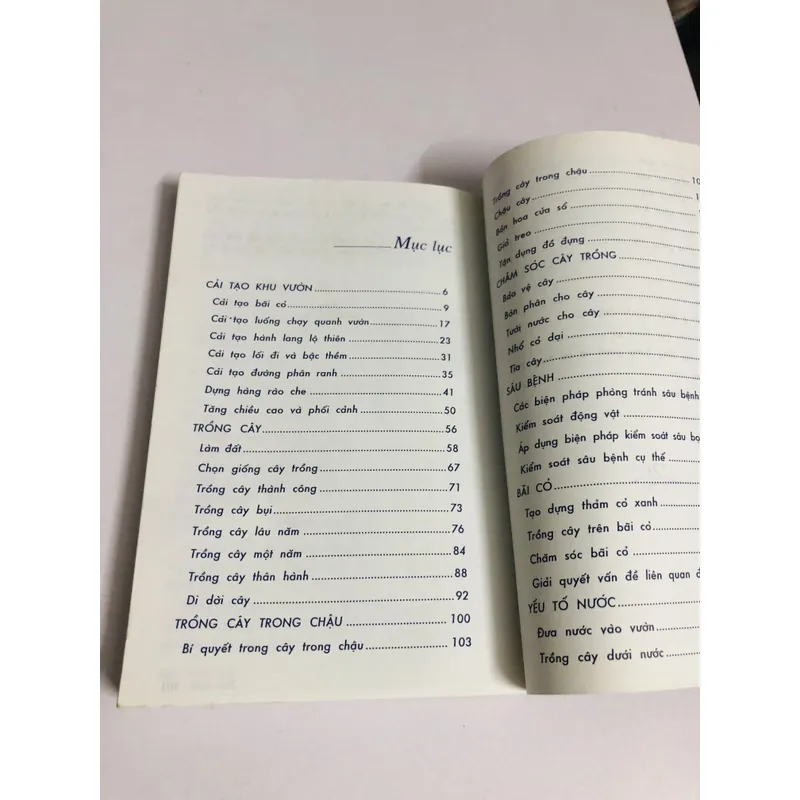 Mục lục
CẢI TẠO KHU VƯỜN 6
Cải tạo bãi cỏ 9
Cải tạo luống chạy quanh vườn 17
Cải tạo hành lang lộ thiên 23
Cải tạo lối đi và bậc thềm 31
Cải tạo đường phân ranh 35
Dựng hàng rào che 41
Tăng chiều cao và phối cảnh 50
TRỒNG CÂY 56
Làm đất 58
Chọn giống cây trồng 67
Trồng cây thành công 71
Trồng cây bụi 73
Trồng cây lâu năm 76
Trồng cây một năm 84
Trồng cây thân hành 88
Di dời cây 92
TRỒNG CÂY TRONG CHẬU 100
Bí quyết trong cây trong chậu 103
Trồng cây trong chậu
Chậu cây
Bồn hoa cửa sổ
Giỏ treo
Tận dụng đồ đựng
CHĂM SÓC CÂY TRỒNG
Bảo vệ cây
Bón phân cho cây
Tưới nước cho cây
Nhổ cỏ dại
Tỉa cây
SÂU BỆNH
Các biện pháp phòng tránh sâu bệnh
Kiểm soát động vật
Áp dụng biện pháp kiểm soát sâu bọ
Kiểm soát sâu bệnh cụ thể
BÃI CỎ
Tạo dựng thảm cỏ xanh
Trồng cây trên bãi cỏ
Chăm sóc bãi cỏ
Giải quyết vấn đề liên quan
YẾU TỐ NƯỚC
Đưa nước vào vườn
Trồng cây dưới nước